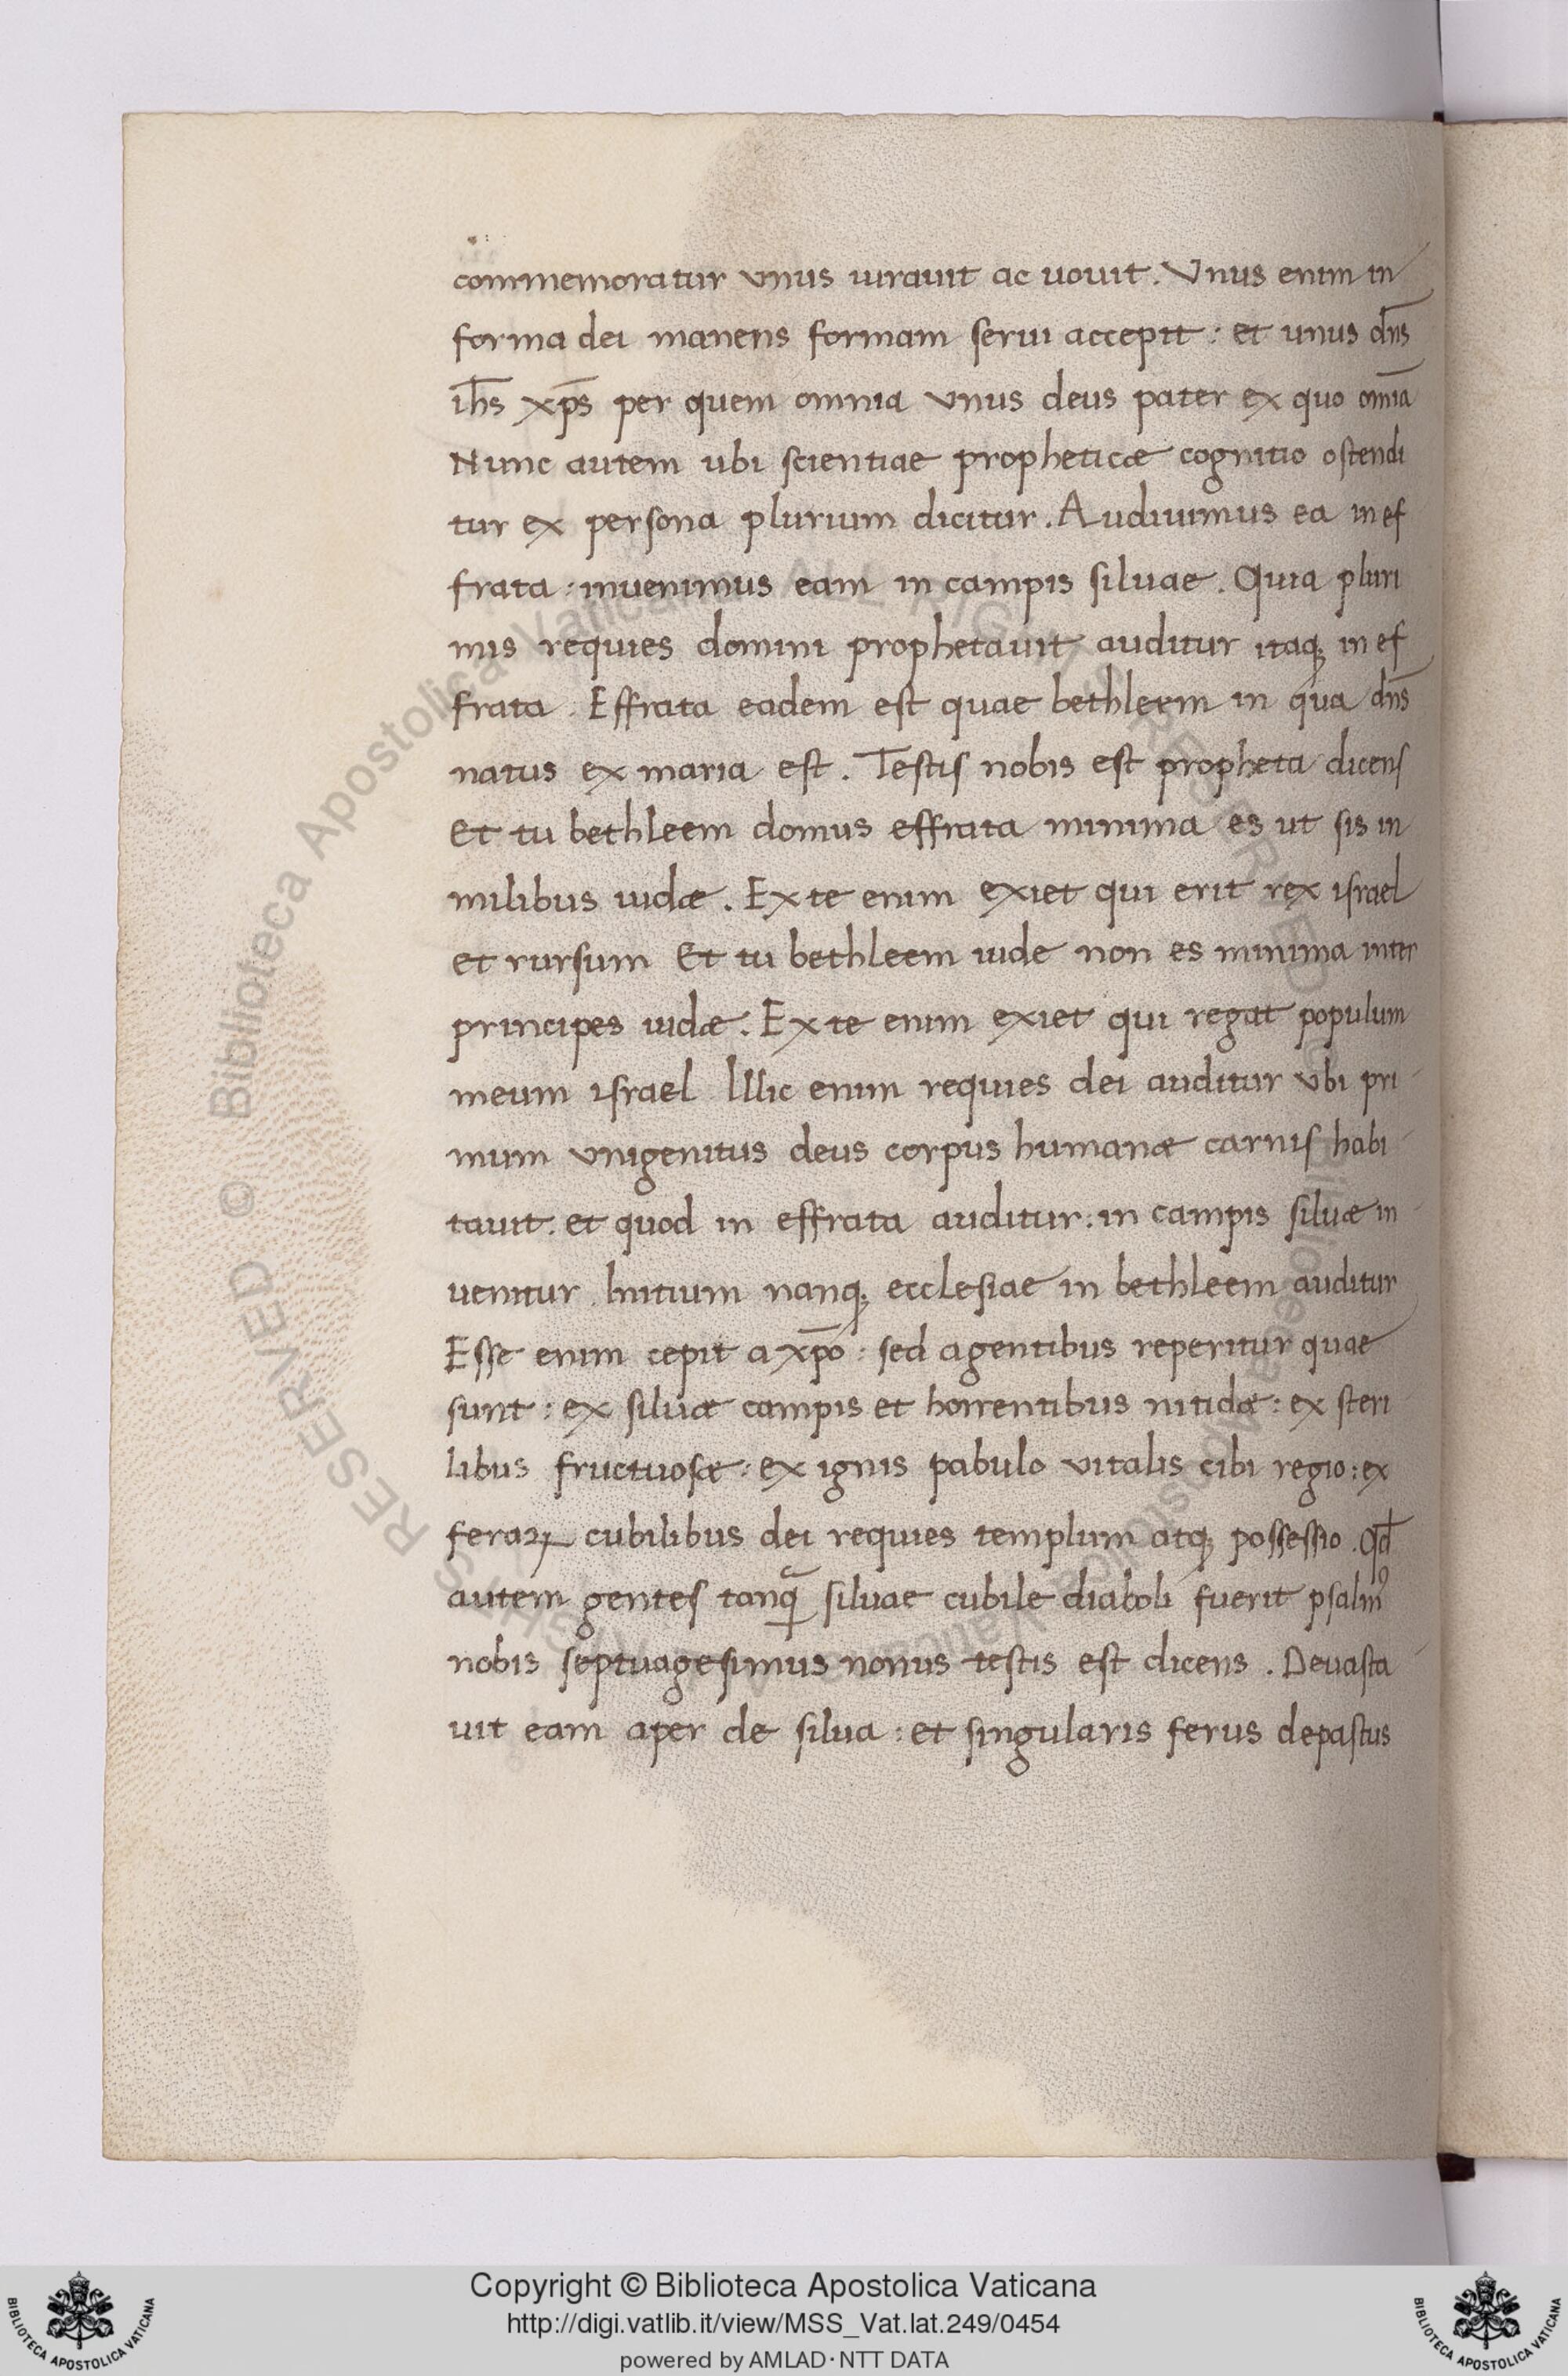 commemoratur vnus iurauit ac uouit. Vnus enim in
forma dei manens formam serui accepit: et unus dn̄s
ih̄s xp̄s per quem omnia vnus deus pater ex quo om̄ia
Nunc autem ubi scientiae propheticæ cognitio ostendi
tur ex persona plurium dicitur. Audiuimus ea in ef
frata: inuenimus eam in campis siluae. Quia pluri
mis requies domini prophetauit auditur itaqꝫ in ef
frata. Effrata eadem est quae bethleem in qua dn̄s
natus ex maria est. Testis nobis est propheta dicens
Et tu bethleem domus effrata minima es ut sis in
milibus iudæ. Ex te enim exiet qui erit rex israel
et rursum Et tu bethleem iude non es minima inter
principes iudæ. Ex te enim exiet qui regat populum
meum israel Illic enim requies dei auditur vbi pri
mum vnigenitus deus corpus humanæ carnis habi
tauit: et quod in effrata auditur: in campis siluæ in
uenitur. Initium nanqꝫ ecclesiae in bethleem auditur
Esse enim cepit a xp̄o: sed agentibus reperitur quae
sunt: ex siluæ campis et horrentibus nitidæ: ex steri
libus fructuosæ: ex ignis pabulo vitalis cibi regio: ex
feraꝝ cubilibus dei requies templum atqꝫ possessio. Qđ
autem gentes tanꝙ̃ siluae cubile diaboli fuerit psalmꝰ
nobis septuagesimus nonus testis est dicens. Deuasta
uit eam aper de silua: et singularis ferus depastus
© Biblioteca Apostolica Vaticana ALL RIGHTS RESERVED
© Biblioteca Apostolica Vaticana ALL RIGHTS RESERVED
Copyright © Biblioteca Apostolica Vaticana
http://digi.vatlib.it/view/MSS_Vat.lat.249/0454
powered by AMLAD·NTT DATA
BIBLIOTECA APOSTOLICA VATICANA
BIBLIOTECA APOSTOLICA VATICANA